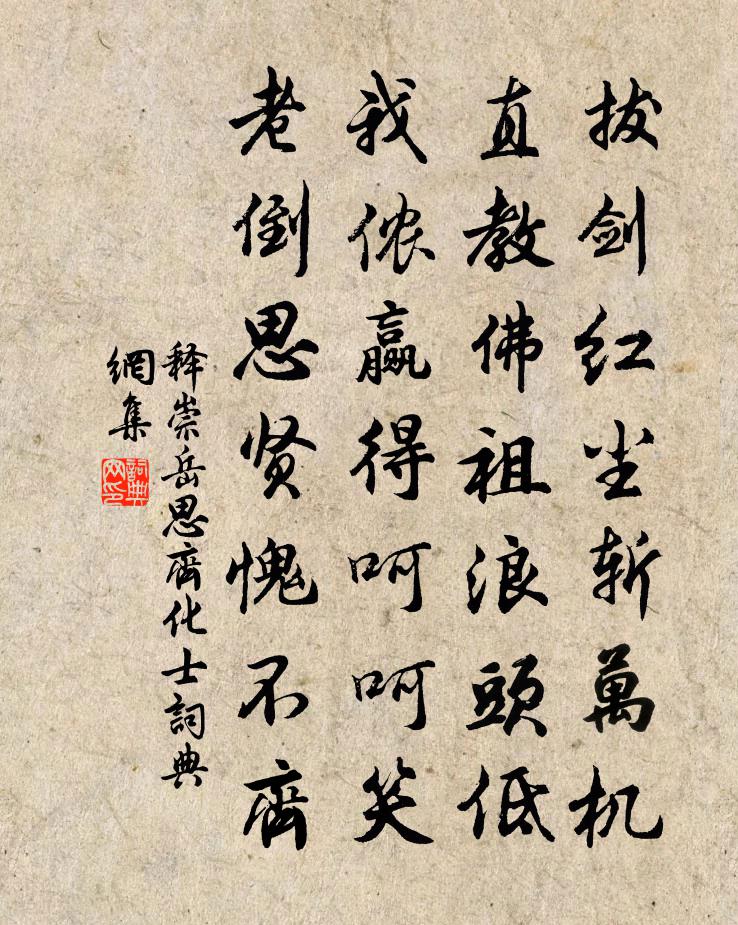 拔剑红尘斩萬机
直教佛祖浪頭低
我侬赢得呵呵笑
老倒思贤愧不齊
释崇岳思齊化士詞典
網集
詞典
网印